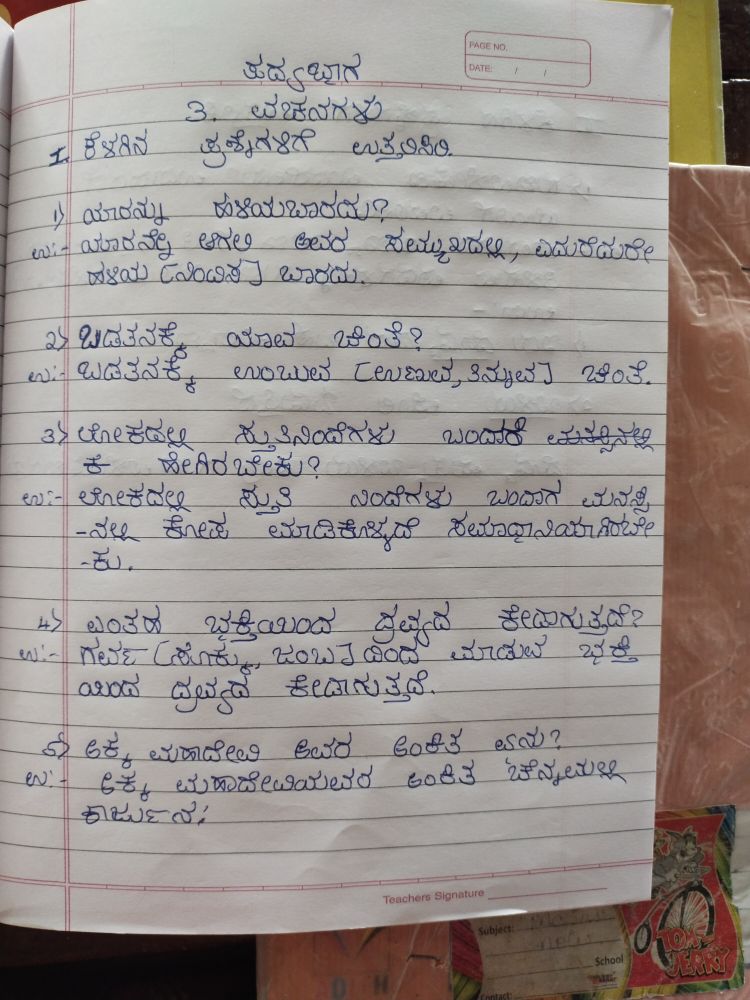 PAGE NO.
DATE: / /
ಪದ್ಯಭಾಗ
3. ವಚನಗಳು
I. ಕೆಳಗಿನ ಪ್ರಶ್ನೆಗಳಿಗೆ ಉತ್ತರಿಸಿರಿ.
1) ಯಾರನ್ನು ಹಳಿಯಬಾರದು?
ಉ:- ಯಾರನ್ನೇ ಆಗಲಿ ಅವರ ಸಮ್ಮುಖದಲ್ಲಿ, ಎದುರೆದುರೇ
ಹಳಿಯ (ನಿಂದಿಸ) ಬಾರದು.
2) ಬಡತನಕ್ಕೆ ಯಾವ ಚಿಂತೆ?
ಉ:- ಬಡತನಕ್ಕೆ ಉಂಬುವ (ಉಣುವ, ತಿನ್ನುವ) ಚಿಂತೆ.
3) ಲೋಕದಲ್ಲಿ ಸ್ತುತಿನಿಂದೆಗಳು ಬಂದಾಗ
ಹೇಗಿರಬೇಕು?
ಉ:- ಲೋಕದಲ್ಲಿ ಸ್ತುತಿ ನಿಂದೆಗಳು ಬಂದಾಗ ಮನಸ್ಸಿ
-ನಲ್ಲಿ ಕೋಪ ಮಾಡಿಕೊಳ್ಳದೆ ಸಮಾಧಾನಿಯಾಗಿರಬೇ
-ಕು.
4) ಎಂತಹ ಭಕ್ತಿಯಿಂದ ದ್ರವ್ಯದ ಕೇಡಾಗುತ್ತದೆ?
ಉ:- ಗರ್ವ (ಸೊಕ್ಕು, ಜಂಬ) ದಿಂದ ಮಾಡುವ ಭಕ್ತಿ
ಯಿಂದ ದ್ರವ್ಯದ ಕೇಡಾಗುತ್ತದೆ.
5) ಅಕ್ಕ ಮಹಾದೇವಿ ಅವರ ಅಂಕಿತ ಏನು?
ಉ:- ಅಕ್ಕ ಮಹಾದೇವಿಯವರ ಅಂಕಿತ 'ಚೆನ್ನಮಲ್ಲಿ
ಕಾರ್ಜುನ'.
Teachers Signature
Subject:
School
Contact:
TOM &
JERRY